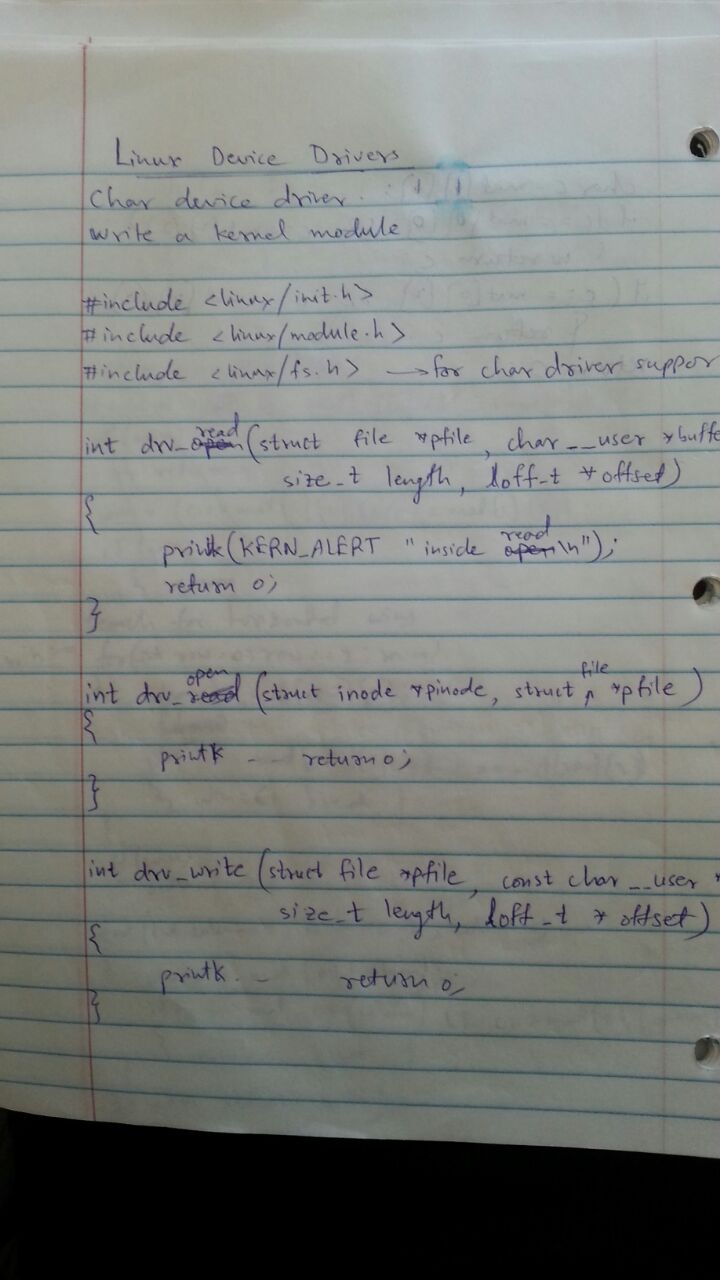 Linux Device Drivers
Char device driver.
Write a kernel module
#include <linux/init.h>
#include <linux/module.h>
#include <linux/fs.h> → for char driver suppor
int drv_read(struct file *pfile, char __user *buffe
size_t length, loff_t *offset)
{
printk(KERN_ALERT "inside read\n");
return 0;
}
int drv_open (struct inode *pinode, struct file *pfile)
{
printk -- return 0;
}
int drv_write (struct file *pfile, const char __user *
size_t length, loff_t * offset)
{
printk -- return 0;
}